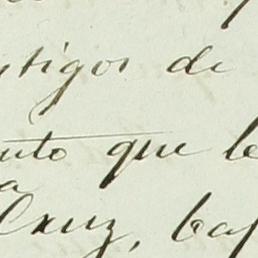 stigos de
nto que le
Cruz, baj